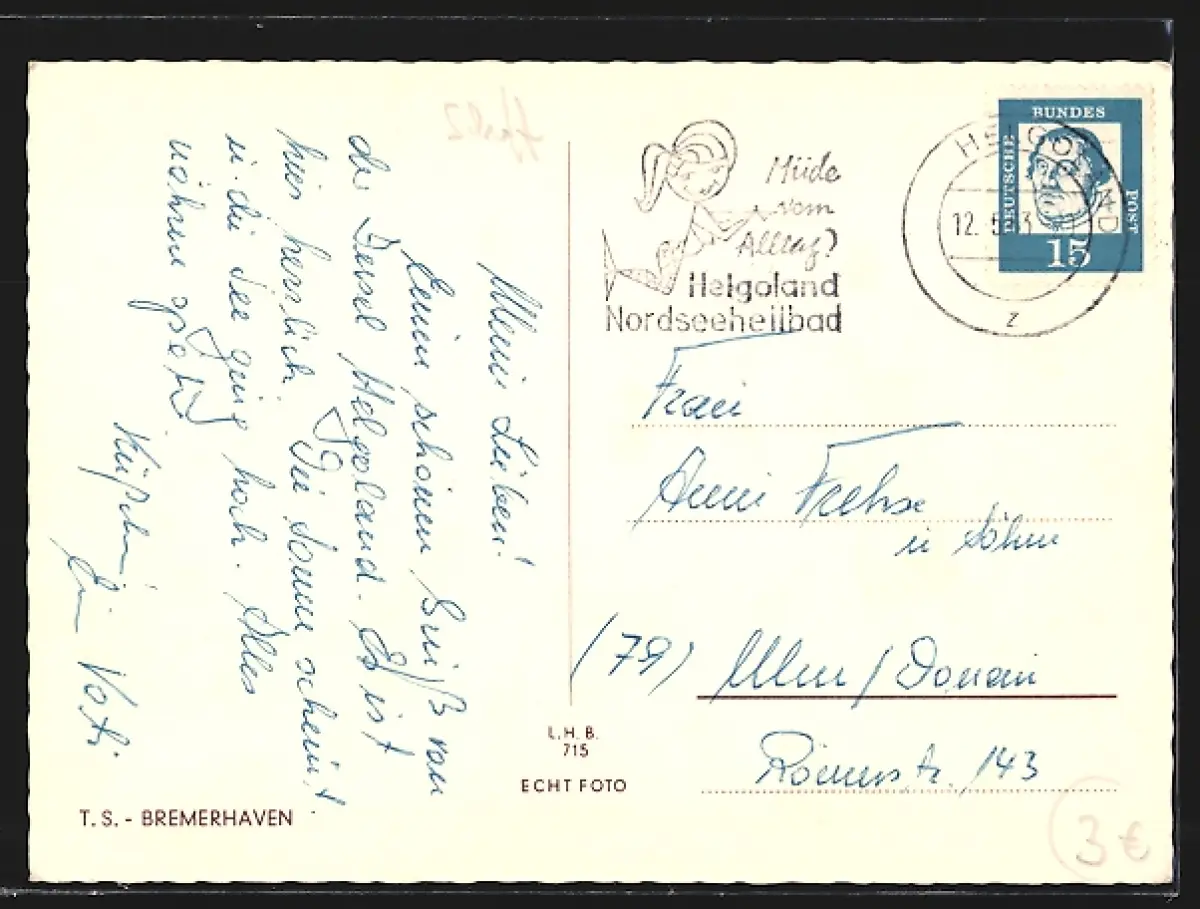 Meine Lieben!
Einen schönen Gruß von
der Insel Helgoland. Es ist
hier herrlich. Die Sonne scheint
u. die See ging hoch. Alles
Küßchen
Euer Vati
T. S. - BREMERHAVEN
L. H. B.
715
ECHT FOTO
Müde
vom
Alltag?
Helgoland
Nordseeheilbad
HELGOLAND
12. 5. 63
z
DEUTSCHE BUNDES POST
15
Frau
Anni Frehse
u Söhne
(79) Ulm / Donau
Römerstr. 143
3 €